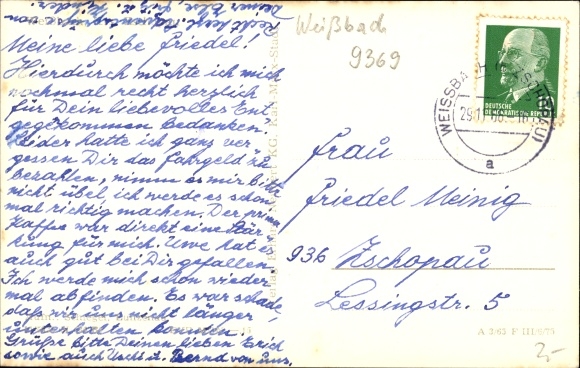 Recht herzl. Feriengrüße von
Deiner Else, Fritz u. Kinder
Meine liebe Friedel!
Hierdurch möchte ich mich
nochmal recht herzlich
für Dein liebevolles Ent-
gegenkommen bedanken.
Leider hatte ich ganz ver-
gessen Dir das Fahrgeld zu
bezahlen, nimm es mir bitte
nicht übel, ich werde es schon
mal richtig machen. Der prima
Kaffee war direkt eine Stär-
kung für mich. Uwe hat es
auch gut bei Dir gefallen.
Ich werde mich schon wieder
mal abfinden. Es war schade,
daß wir uns nicht länger
unterhalten konnten.
Grüße bitte Deinen lieben Erich
sowie auch Uschi u. Bernd von uns.
Weißbad
9369
DEUTSCHE
DEMOKRATISCHE REPUBLIK
WEISSBACH (ZSCHOPAU)
a
Frau
Friedel Meinig
936 Zschopau
Lessingstr. 5
A 3/63 F III/6/70
2,-